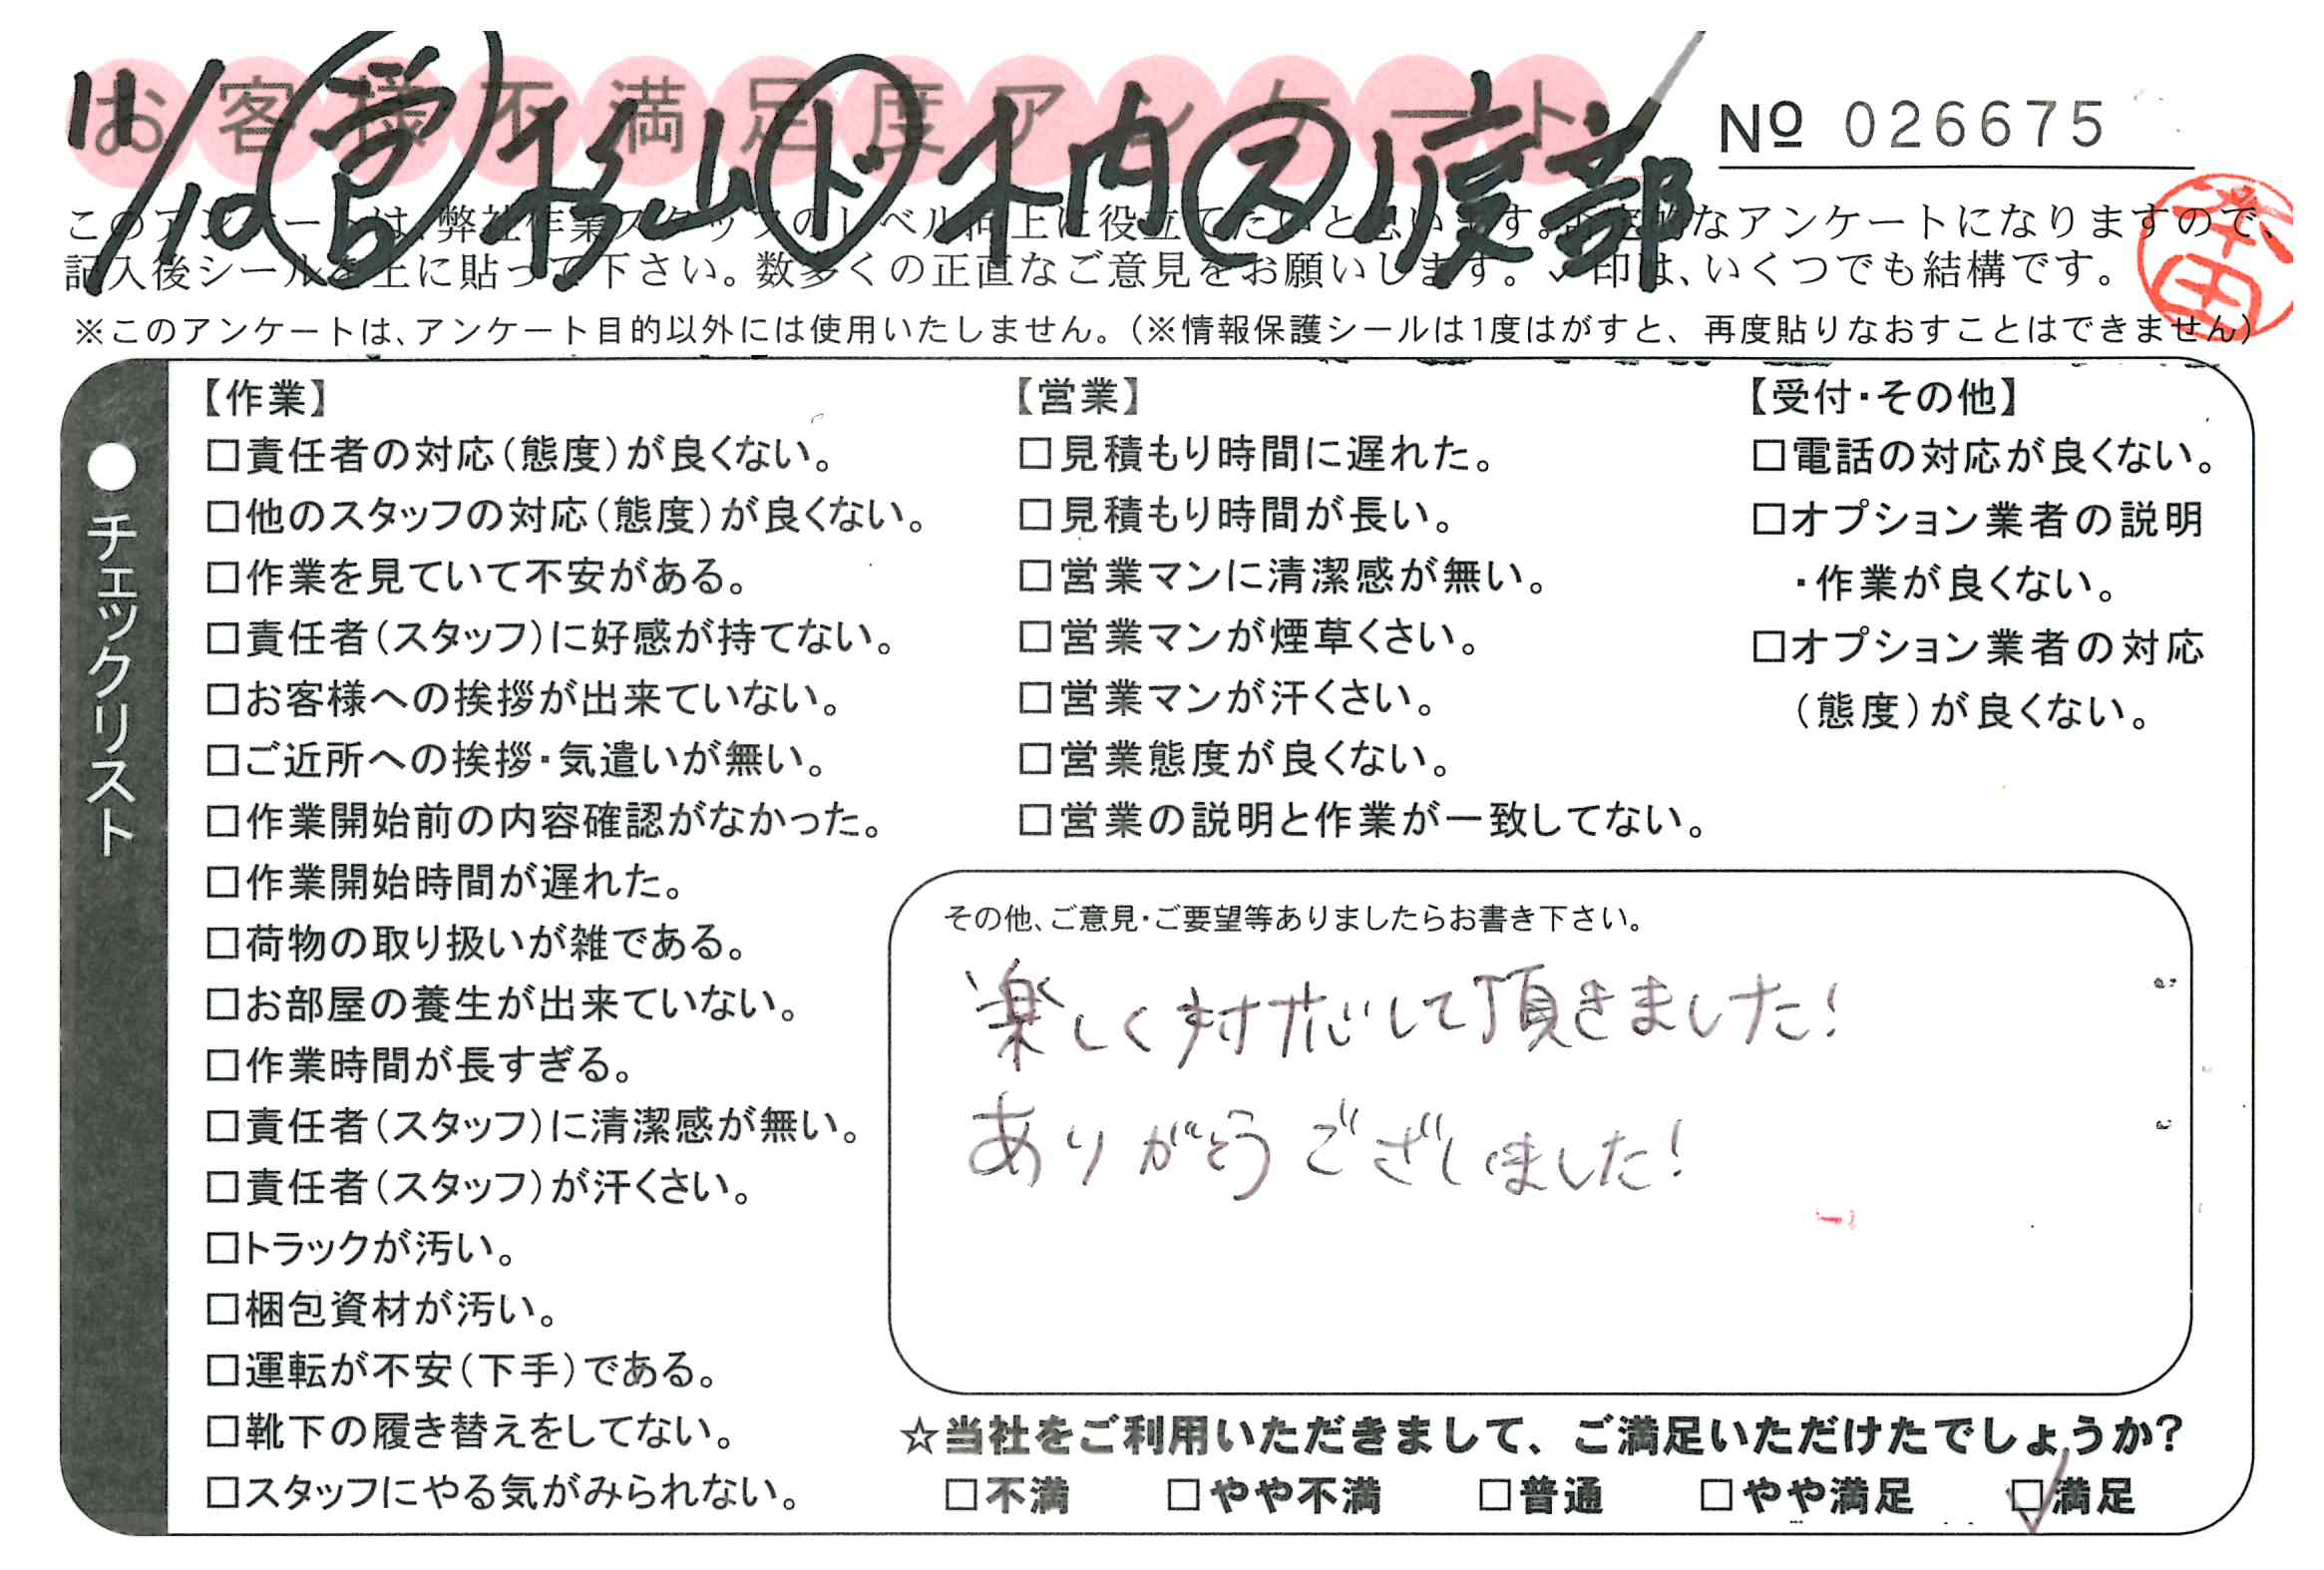 お客様不満足度アンケート
11/10 営 杉山 ド 木内 ス 渡部
№ 026675
このアンケートは、弊社作業スタッフのレベル向上に役立てたいと思います。 なアンケートになりますので、
記入後シールを上に貼って下さい。数多くの正直なご意見をお願いします。✓印は、いくつでも結構です。
※このアンケートは、アンケート目的以外には使用いたしません。(※情報保護シールは1度はがすと、再度貼りなおすことはできません)
●チェックリスト
【作業】
□責任者の対応(態度)が良くない。
□他のスタッフの対応(態度)が良くない。
□作業を見ていて不安がある。
□責任者(スタッフ)に好感が持てない。
□お客様への挨拶が出来ていない。
□ご近所への挨拶・気遣いが無い。
□作業開始前の内容確認がなかった。
□作業開始時間が遅れた。
□荷物の取り扱いが雑である。
□お部屋の養生が出来ていない。
□作業時間が長すぎる。
□責任者(スタッフ)に清潔感が無い。
□責任者(スタッフ)が汗くさい。
□トラックが汚い。
□梱包資材が汚い。
□運転が不安(下手)である。
□靴下の履き替えをしてない。
□スタッフにやる気がみられない。
【営業】
□見積もり時間に遅れた。
□見積もり時間が長い。
□営業マンに清潔感が無い。
□営業マンが煙草くさい。
□営業マンが汗くさい。
□営業態度が良くない。
□営業の説明と作業が一致してない。
【受付・その他】
□電話の対応が良くない。
□オプション業者の説明
・作業が良くない。
□オプション業者の対応
(態度)が良くない。
その他、ご意見・ご要望等ありましたらお書き下さい。
楽しく対応して頂きました!
ありがとうございました!
☆当社をご利用いただきまして、ご満足いただけたでしょうか?
□不満 □やや不満 □普通 □やや満足 ☑満足